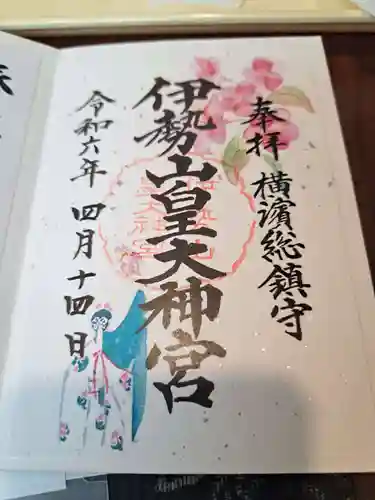 奉拝 横濱総鎮守
伊勢山皇大神宮
令和六年 四月十四日